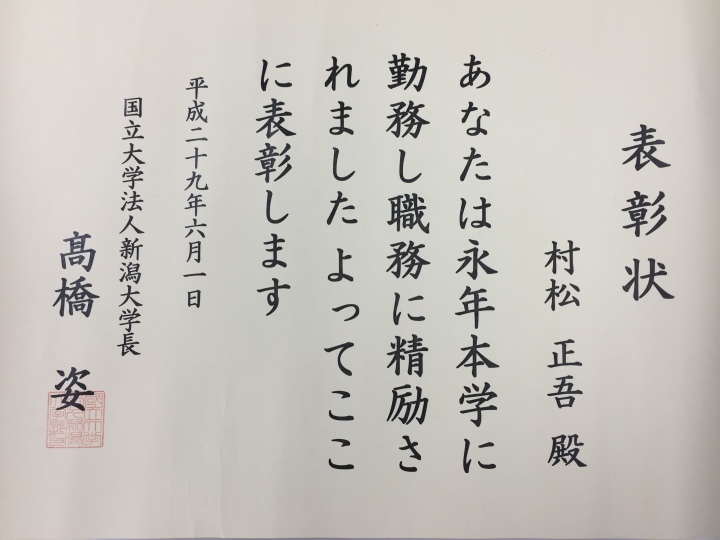 表彰状
村松 正吾 殿
あなたは永年本学に
勤務し職務に精励さ
れました よってここ
に表彰します
平成二十九年六月一日
国立大学法人新潟大学長
髙橋 姿